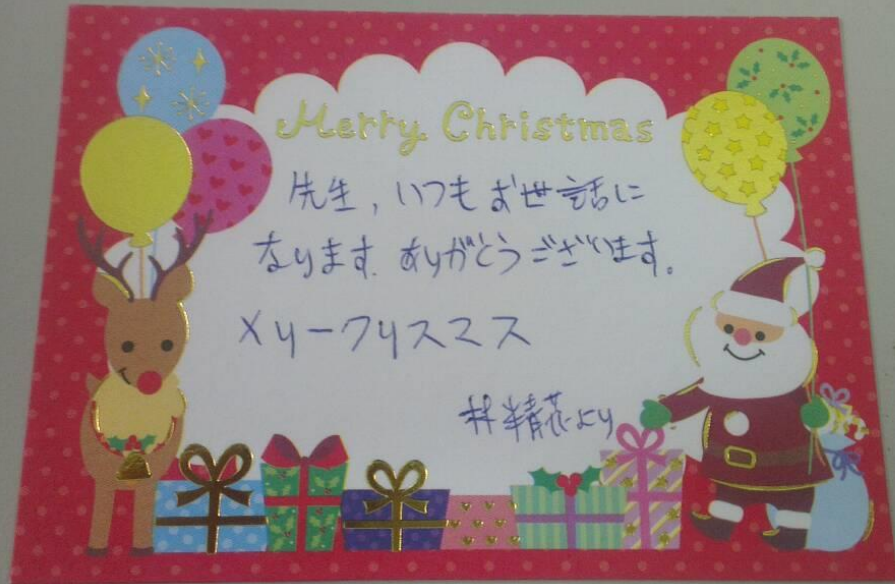 Merry Christmas
先生，いつもお世話に
なります．ありがとうございます。
メリークリスマス
林精花より